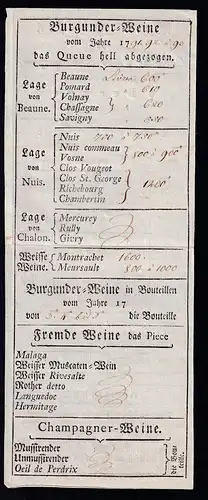 Burgunder-Weine
vom Jahre 17
das Queue hell abgezogen.
Lage von Beaune.
Beaune
Pomard 610
Volnay
Chassagne
Savigny
Lage von Nuis.
Nuis 700 à 750
Nuis commeau
Vosne 800 à 900
Clos Vougeot
Clos St. George
Richebourg
Chambertin
Lage von Chalon.
Mercurey
Rully
Givry
Weiße Weine.
Montrachet 1600
Meursault 800 à 1000
Burgunder-Weine in Bouteillen
vom Jahre 17
von die Bouteille
Fremde Weine das Piece
Malaga
Weisser Muscaten-Wein
Weisser Rivesalte
Rother detto
Languedoc
Hermitage
Champagner-Weine.
Mussirender
Unmussirender
Oeil de Perdrix
die Bouteille.